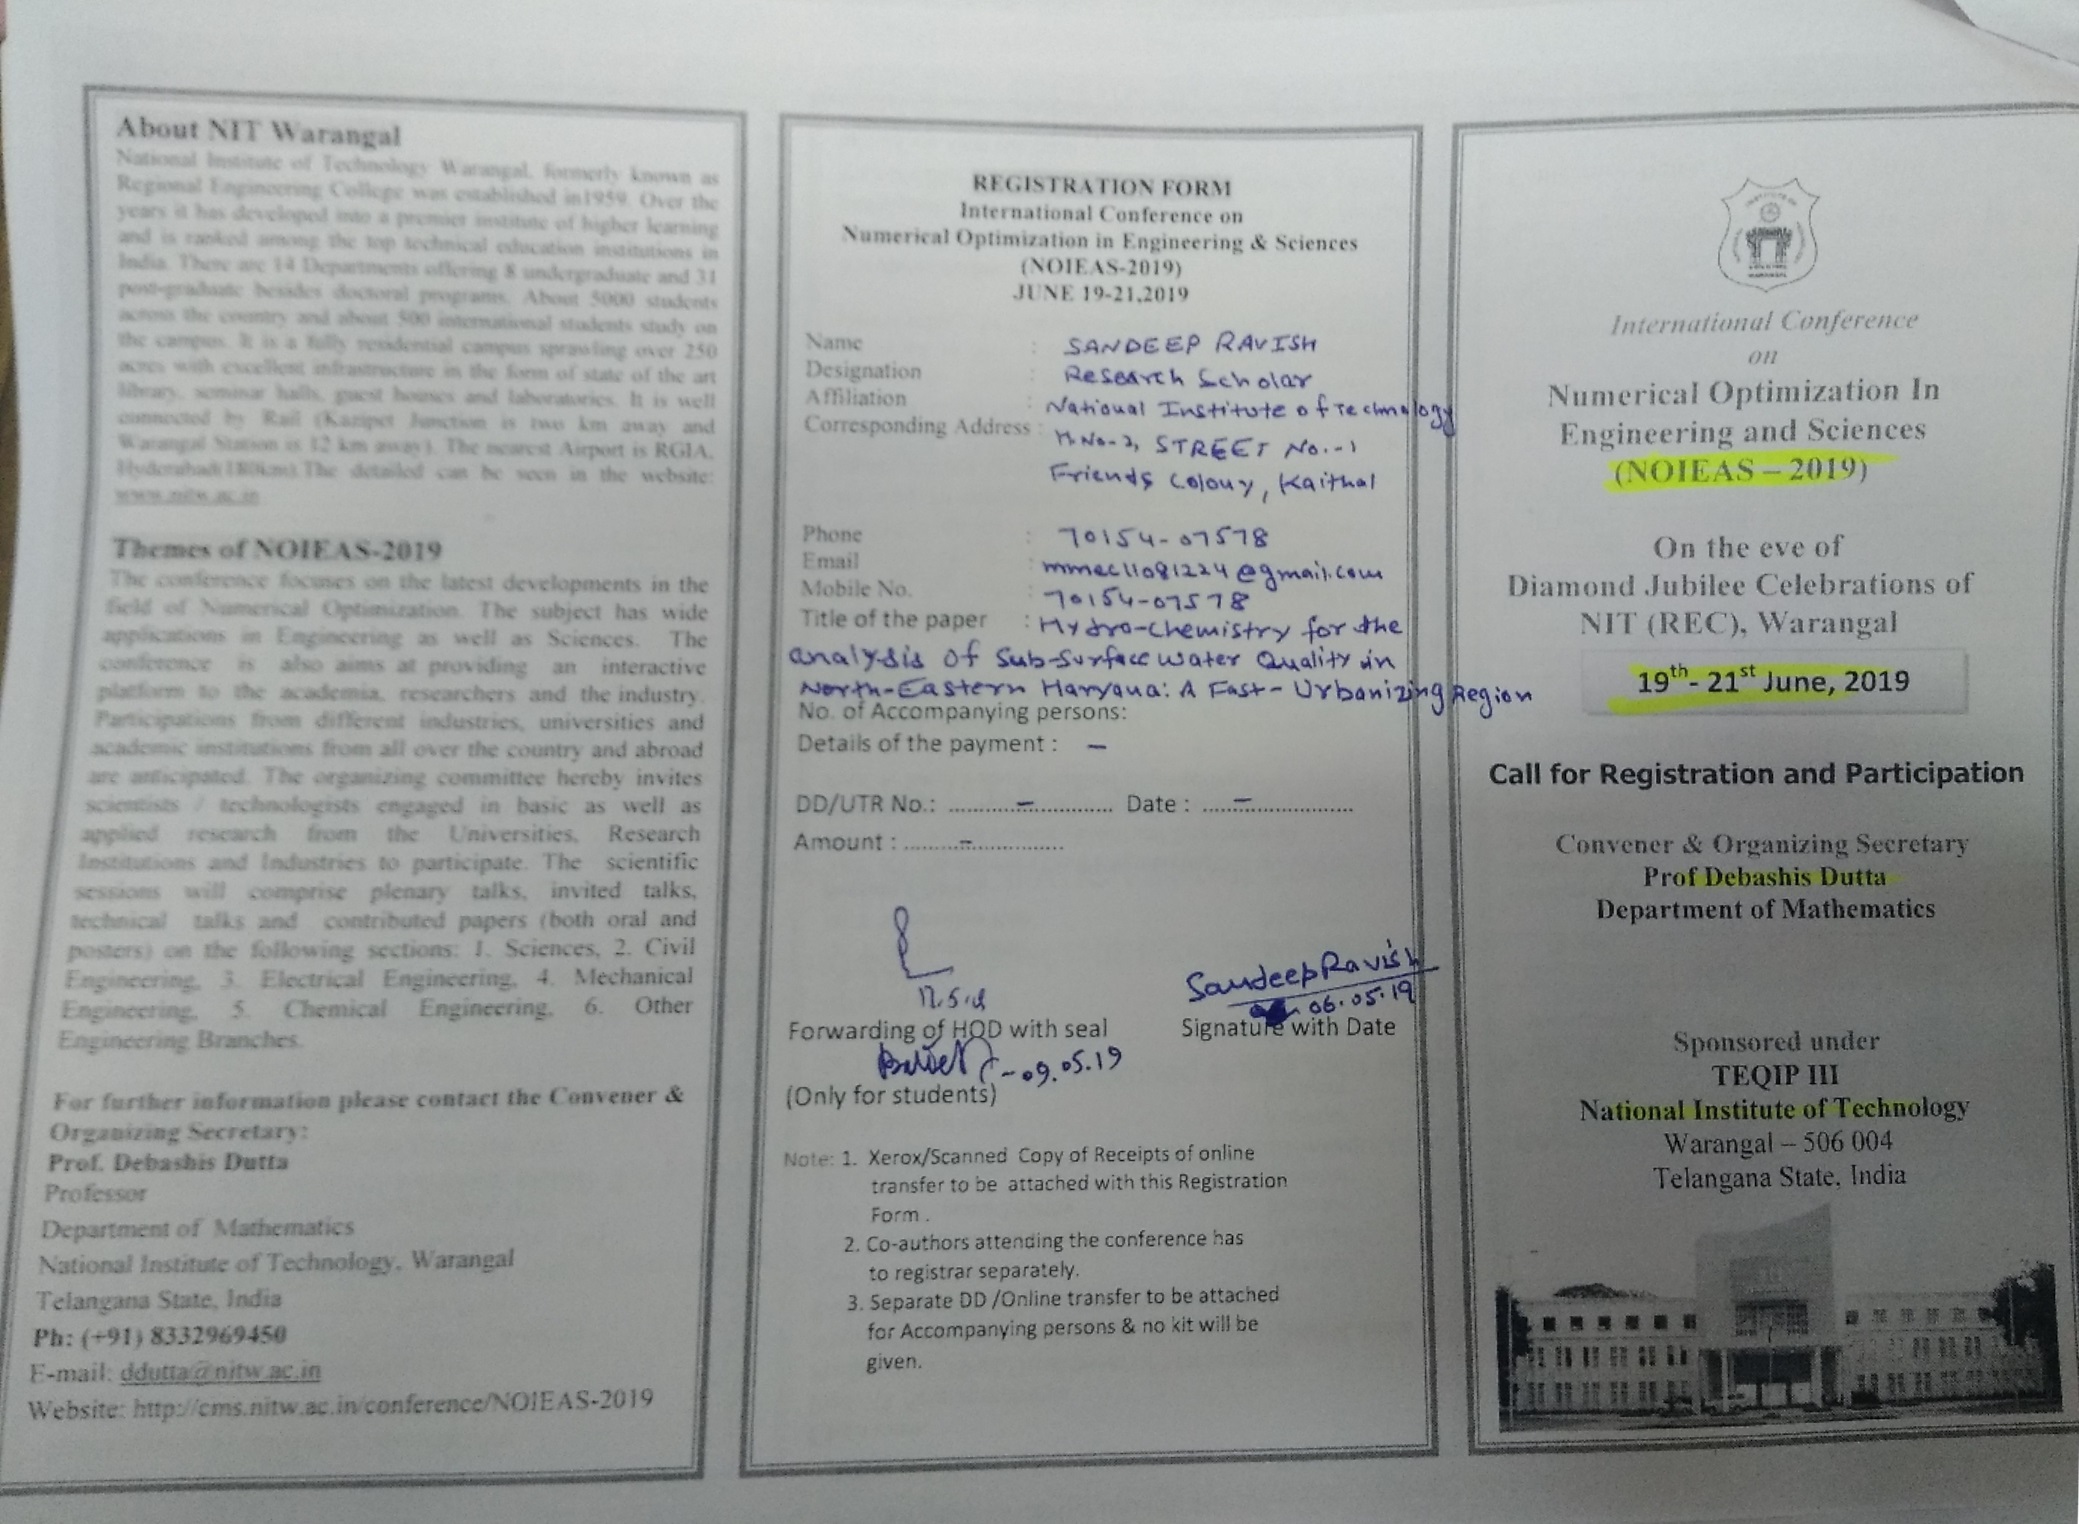 About NIT Warangal
National Institute of Technology Warangal, formerly known as
Regional Engineering College was established in1959. Over the
years it has developed into a premier institute of higher learning
and is ranked among the top technical education institutions in
India. There are 14 Departments offering 8 undergraduate and 31
post-graduate besides doctoral programs. About 5000 students
across the country and about 500 international students study on
the campus. It is a fully residential campus sprawling over 250
acres with excellent infrastructure in the form of state of the art
library, seminar halls, guest houses and laboratories. It is well
connected by Rail (Kazipet Junction is two km away and
Warangal Station is 12 km away). The nearest Airport is RGIA,
Hyderabad(180km).The detailed can be seen in the website:
www.nitw.ac.in
Themes of NOIEAS-2019
The conference focuses on the latest developments in the
field of Numerical Optimization. The subject has wide
applications in Engineering as well as Sciences. The
conference is also aims at providing an interactive
platform to the academia, researchers and the industry.
Participations from different industries, universities and
academic institutions from all over the country and abroad
are anticipated. The organizing committee hereby invites
scientists / technologists engaged in basic as well as
applied research from the Universities, Research
Institutions and Industries to participate. The scientific
sessions will comprise plenary talks, invited talks,
technical talks and contributed papers (both oral and
posters) on the following sections: 1. Sciences, 2. Civil
Engineering, 3. Electrical Engineering, 4. Mechanical
Engineering, 5. Chemical Engineering, 6. Other
Engineering Branches.
For further information please contact the Convener &
Organizing Secretary:
Prof. Debashis Dutta
Professor
Department of Mathematics
National Institute of Technology, Warangal
Telangana State, India
Ph: (+91) 8332969450
E-mail: ddutta@nitw.ac.in
Website: http://cms.nitw.ac.in/conference/NOIEAS-2019
REGISTRATION FORM
International Conference on
Numerical Optimization in Engineering & Sciences
(NOIEAS-2019)
JUNE 19-21,2019
Name : SANDEEP RAVISH
Designation : Research Scholar
Affiliation : National Institute of Technology
Corresponding Address : H.No-2, STREET No.-1
Friends Colouy, Kaithal
Phone : 70154-07578
Email : mmec11081224@gmail.com
Mobile No. : 70154-07578
Title of the paper : Hydro-Chemistry for the
analysis of Sub-Surface water Quality in
North-Eastern Haryana: A Fast-Urbanizing Region
No. of Accompanying persons:
Details of the payment : –
DD/UTR No.: ..........–............ Date : ......–...............
Amount : .........–...............
17.5.19
SandeepRavish
06.05.19
Forwarding of HOD with seal Signature with Date
-09.05.19
(Only for students)
Note: 1. Xerox/Scanned Copy of Receipts of online
transfer to be attached with this Registration
Form .
2. Co-authors attending the conference has
to registrar separately.
3. Separate DD /Online transfer to be attached
for Accompanying persons & no kit will be
given.
International Conference
on
Numerical Optimization In
Engineering and Sciences
(NOIEAS – 2019)
On the eve of
Diamond Jubilee Celebrations of
NIT (REC), Warangal
19th- 21st June, 2019
Call for Registration and Participation
Convener & Organizing Secretary
Prof Debashis Dutta
Department of Mathematics
Sponsored under
TEQIP III
National Institute of Technology
Warangal – 506 004
Telangana State, India